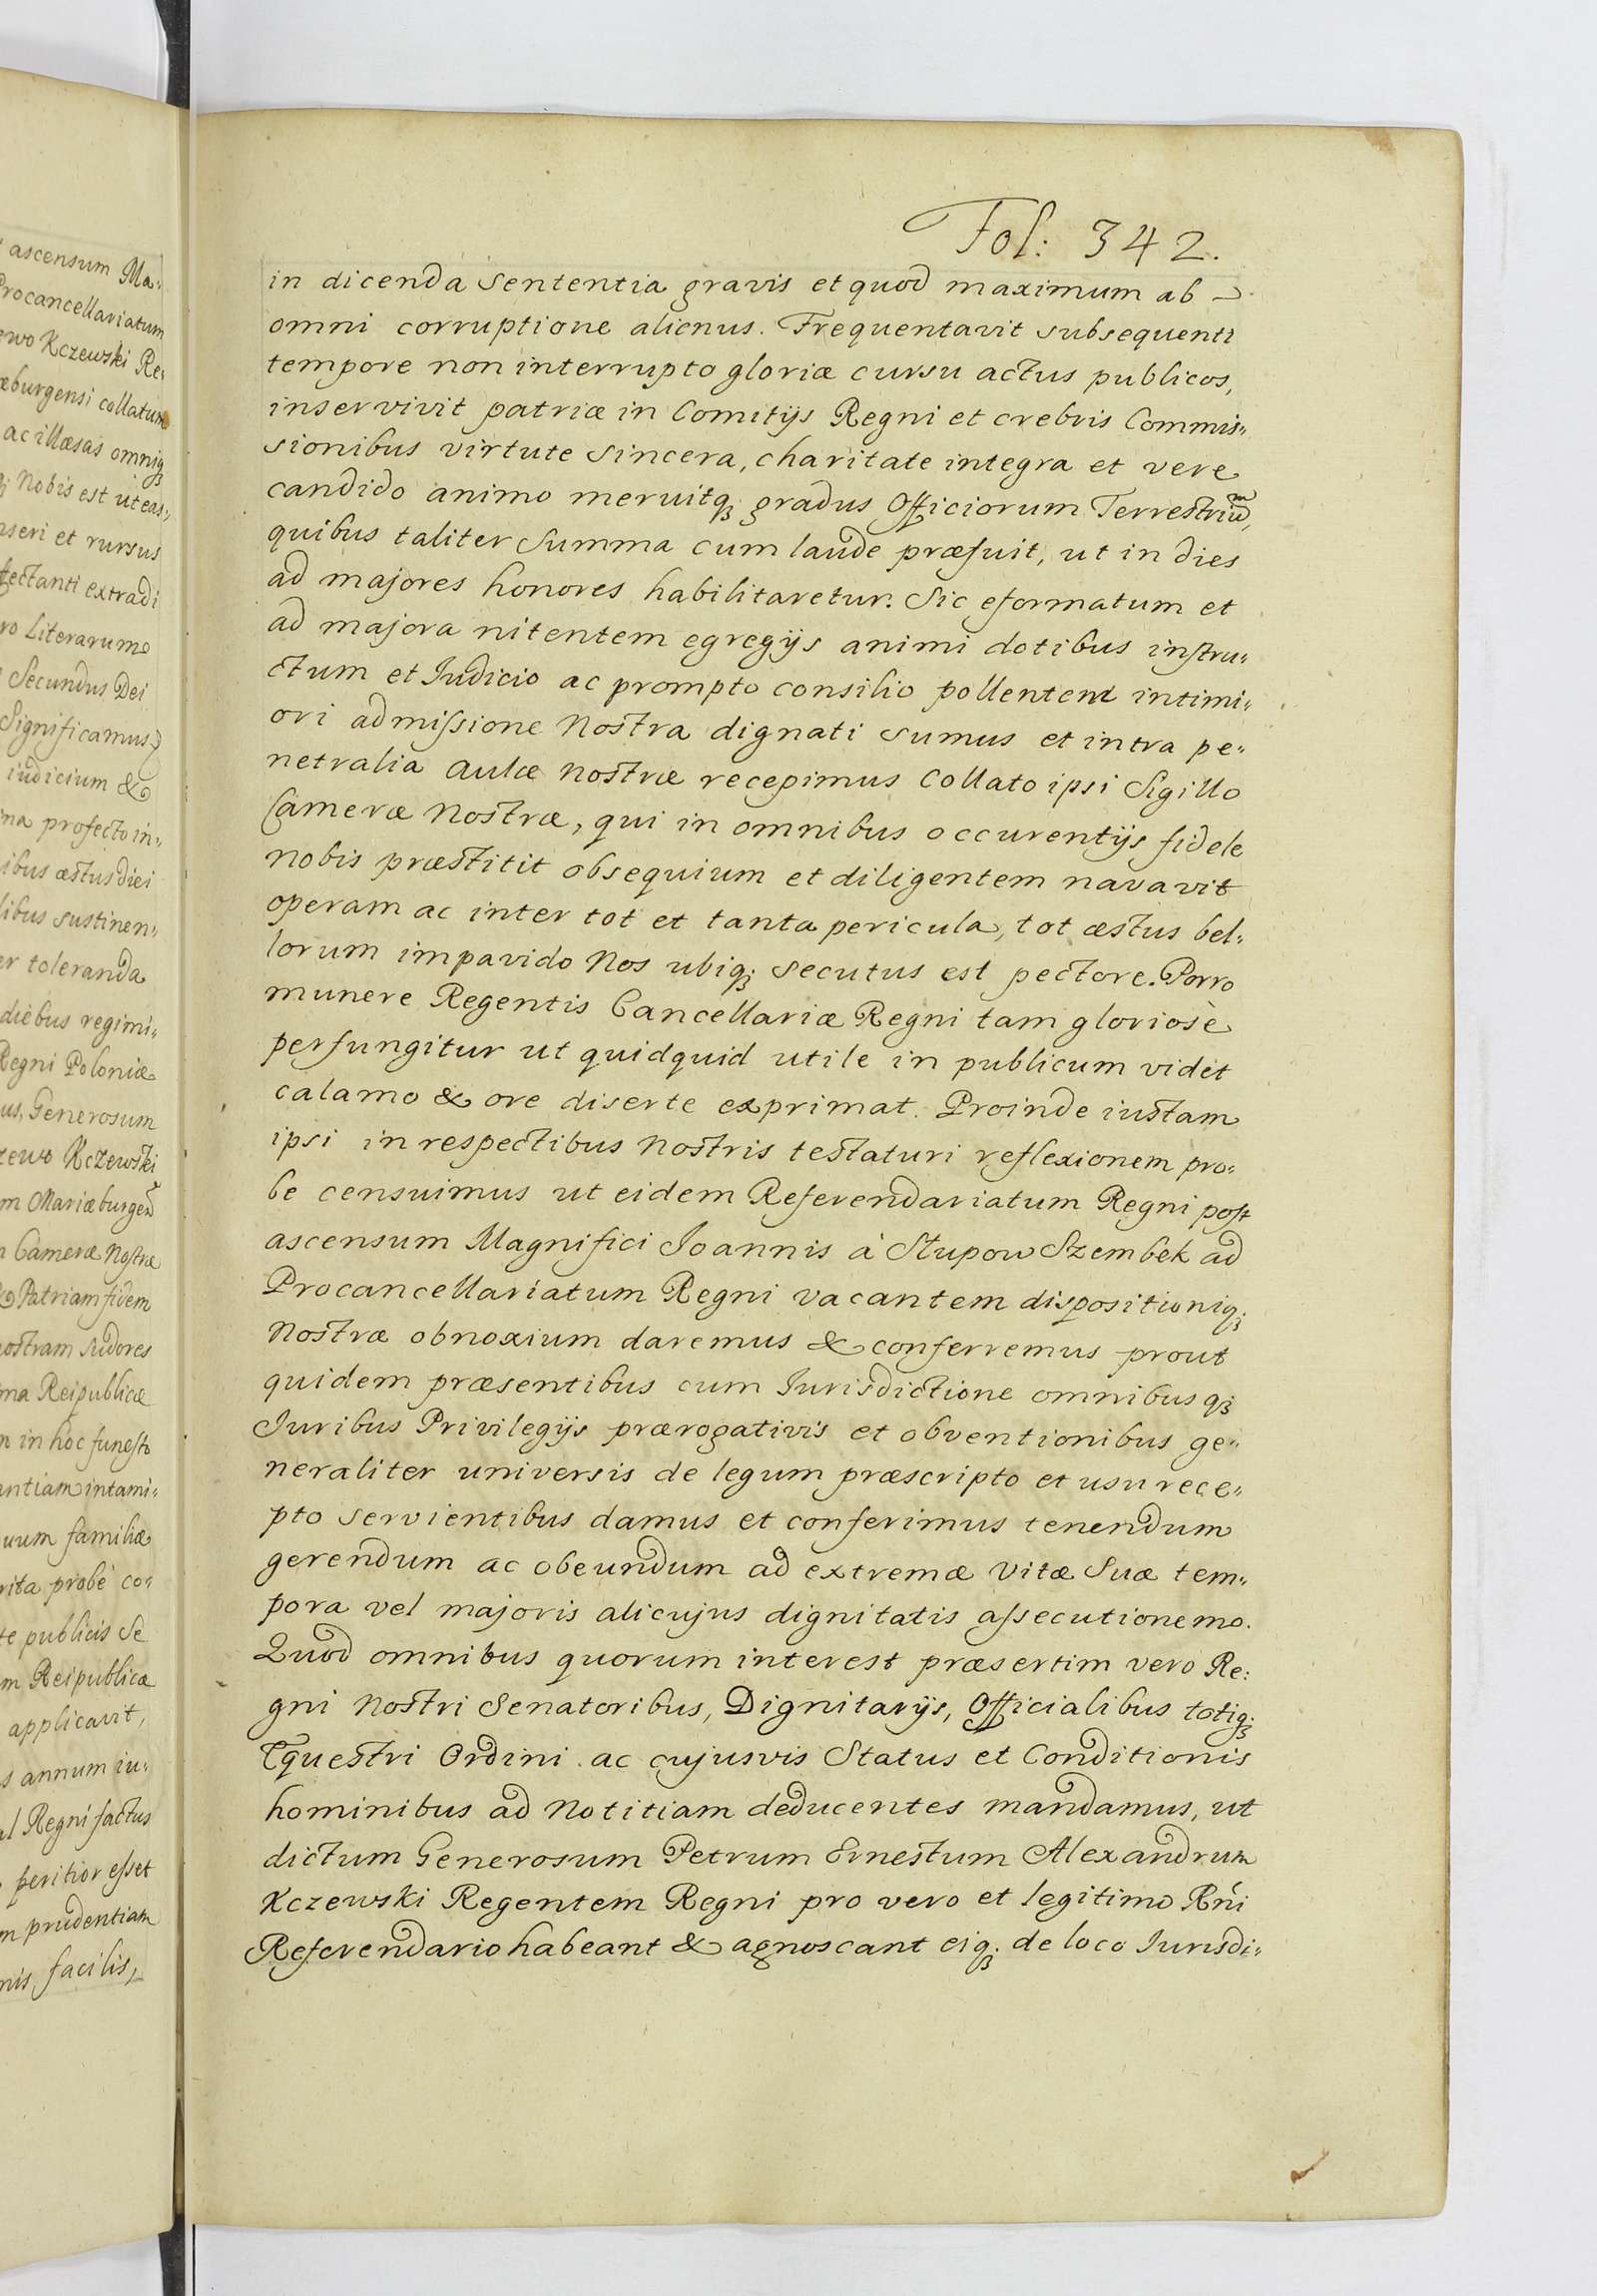 ascensum Ma-
Procancellariatum
ewo Kczewski Re-
æburgensi collatum
ac illæsas omniq;
q; Nobis est ut eas-
nseri et rursus
fectanti extradi
ro Literarum
Secundus Dei
Significamus
iudicium &
ma profecto in-
ibus æstus diei
libus sustinen-
er toleranda
diebus regimi-
Regni Poloniæ
us, Generosum
zewo Kczewski
m Mariæburgen
a Cameræ Nostræ
& Patriam fidem
nostram sudores
ma Reipublicæ
n in hoc funesto
antiam intami-
uum familiæ
rita probè co-
te publicis Se
m Reipublicæ
applicavit,
s annum iu-
al Regni factus
peritior esset
m prudentiam
nis, facilis,
Fol: 342.
in dicenda Sententia gravis et quod maximum ab
omni corruptione alienus. Frequentavit subsequenti
tempore non interrupto gloriæ cursu actus publicos,
inservivit patriæ in Comitijs Regni et crebris Commis-
sionibus virtute sincera, charitate integra et vere
candido animo meruitq; gradus Officiorum Terrestrium,
quibus taliter Summa cum laude præfuit, ut in dies
ad majores honores habilitaretur. Sic eformatum et
ad majora nitentem egregijs animi dotibus instru-
ctum et Iudicio ac prompto consilio pollentem intimi-
ori admissione Nostra dignati sumus et intra pe-
netralia Aulæ nostræ recepimus Collato ipsi Sigillo
Cameræ Nostræ, qui in omnibus occurentijs fidele
nobis præstitit obsequium et diligentem navavit
operam ac inter tot et tanta pericula, tot æstus bel-
lorum impavido Nos ubiq; secutus est pectore. Porro
munere Regentis Cancellariæ Regni tam gloriosè
perfungitur ut quidquid utile in publicum videt
calamo & ore diserte exprimat. Proinde iustam
ipsi in respectibus Nostris testaturi reflexionem pro-
be censuimus ut eidem Referendariatum Regni post
ascensum Magnifici Joannis à Stupow Szembek ad
Procancellariatum Regni vacantem dispositioniq;
Nostræ obnoxium daremus & conferremus prout
quidem præsentibus cum Iurisdictione omnibusq;
Iuribus Privilegijs prærogativis et obventionibus ge-
neraliter universis de legum præscripto et usu rece-
pto servientibus damus et conferimus tenendum
gerendum ac obeundum ad extremæ vitæ Suæ tem-
pora vel majoris alicujus dignitatis assecutionem.
Quod omnibus quorum interest præsertim vero Re-
gni Nostri Senatoribus, Dignitarijs, Officialibus totiq;
Equestri Ordini ac cujusvis Status et Conditionis
hominibus ad Notitiam deducentes mandamus, ut
dictum Generosum Petrum Ernestum Alexandrum
Kczewski Regentem Regni pro vero et legitimo Rñi
Referendario habeant & agnoscant eiq; de loco Iurisdi-